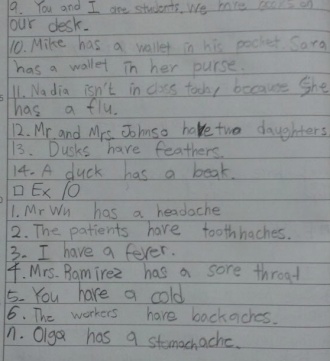 9. You and I are students. We have books on
our desk.
10. Mike has a wallet in his pocket. Sara
has a wallet in her purse.
11. Nadia isn't in class today because She
has a flu.
12. Mr. and Mrs. Johnso have two daughters
13. Dusks have feathers.
14. A duck has a beak.
□ Ex 10
1. Mr Wu has a headache
2. The patients have toothhaches.
3. I have a fever.
4. Mrs. Ramirez has a sore throat
5. You have a cold
6. The workers have backaches.
7. Olga has a stomachache.